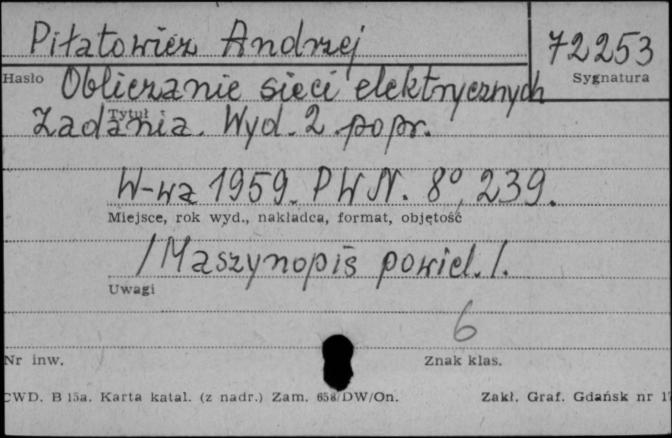 Piłatowicz Andrzej
72253
Hasło
Sygnatura
Obliczanie sieci elektrycznych
Tytuł
Zadania. Wyd. 2 popr.
W-wa 1959. PWN. 8°, 239.
Miejsce, rok wyd., nakładca, format, objętość
/Maszynopis powiel./.
Uwagi
6
Nr inw.
Znak klas.
CWD. B 15a. Karta katal. (z nadr.) Zam. 658/DW/On.
Zakł. Graf. Gdańsk nr 17